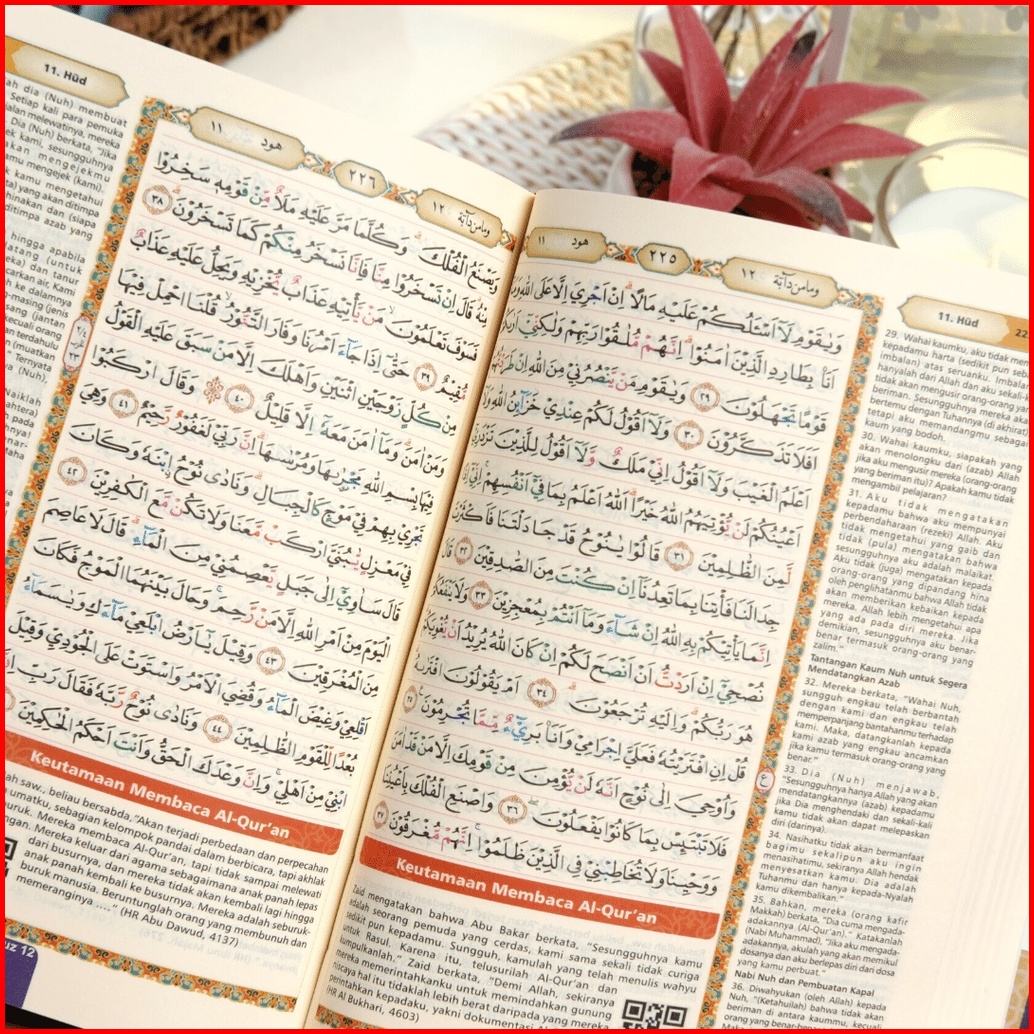 11. Hūd
هود ١١
٢٢٥
ومامن دآبّة ١٢
وَيٰقَوْمِ لَآ اَسْـَٔلُكُمْ عَلَيْهِ مَالًاۗ اِنْ اَجْرِيَ اِلَّا عَلَى اللّٰهِ وَمَآ
اَنَا۠ بِطَارِدِ الَّذِيْنَ اٰمَنُوْاۗ اِنَّهُمْ مُّلٰقُوْا رَبِّهِمْ وَلٰكِنِّيْٓ اَرٰىكُمْ
قَوْمًا تَجْهَلُوْنَ ٢٩ وَيٰقَوْمِ مَنْ يَّنْصُرُنِيْ مِنَ اللّٰهِ اِنْ طَرَدْتُّهُمْ
اَفَلَا تَذَكَّرُوْنَ ٣٠ وَلَآ اَقُوْلُ لَكُمْ عِنْدِيْ خَزَاۤىِٕنُ اللّٰهِ وَلَآ
اَعْلَمُ الْغَيْبَ وَلَآ اَقُوْلُ اِنِّيْ مَلَكٌ وَّلَآ اَقُوْلُ لِلَّذِيْنَ تَزْدَرِيْٓ
اَعْيُنُكُمْ لَنْ يُّؤْتِيَهُمُ اللّٰهُ خَيْرًاۗ اَللّٰهُ اَعْلَمُ بِمَا فِيْٓ اَنْفُسِهِمْۚ اِنِّيْٓ اِذًا
لَّمِنَ الظّٰلِمِيْنَ ٣١ قَالُوْا يٰنُوْحُ قَدْ جَادَلْتَنَا فَاَكْثَرْتَ
جِدَالَنَا فَأْتِنَا بِمَا تَعِدُنَآ اِنْ كُنْتَ مِنَ الصّٰدِقِيْنَ ٣٢ قَالَ
اِنَّمَا يَأْتِيْكُمْ بِهِ اللّٰهُ اِنْ شَاۤءَ وَمَآ اَنْتُمْ بِمُعْجِزِيْنَ ٣٣ وَلَا يَنْفَعُكُمْ
نُصْحِيْٓ اِنْ اَرَدْتُّ اَنْ اَنْصَحَ لَكُمْ اِنْ كَانَ اللّٰهُ يُرِيْدُ اَنْ يُّغْوِيَكُمْۗ
هُوَ رَبُّكُمْۗ وَاِلَيْهِ تُرْجَعُوْنَۗ ٣٤ اَمْ يَقُوْلُوْنَ افْتَرٰىهُۗ
قُلْ اِنِ افْتَرَيْتُهٗ فَعَلَيَّ اِجْرَامِيْ وَاَنَا۠ بَرِيْۤءٌ مِّمَّا تُجْرِمُوْنَ ٣٥
وَاُوْحِيَ اِلٰى نُوْحٍ اَنَّهٗ لَنْ يُّؤْمِنَ مِنْ قَوْمِكَ اِلَّا مَنْ قَدْ اٰمَنَ
فَلَا تَبْتَىِٕسْ بِمَا كَانُوْا يَفْعَلُوْنَ ٣٦ وَاصْنَعِ الْفُلْكَ بِاَعْيُنِنَا
وَوَحْيِنَا وَلَا تُخَاطِبْنِيْ فِى الَّذِيْنَ ظَلَمُوْاۚ اِنَّهُمْ مُّغْرَقُوْنَ ٣٧
29. Wahai kaumku, aku tidak mem
kepadamu harta (sedikit pun seba
imbalan) atas seruanku. Imbalan
hanyalah dari Allah dan aku sekali-k
tidak akan mengusir orang-orang yang
beriman. Sesungguhnya mereka akan
bertemu dengan Tuhannya (di akhirat)
tetapi aku memandangmu sebagai
kaum yang bodoh.
30. Wahai kaumku, siapakah yang
akan menolongku dari (azab) Allah
jika aku mengusir mereka (orang-orang
yang beriman itu)? Apakah kamu tidak
mengambil pelajaran?
31. Aku tidak mengatakan
kepadamu bahwa aku mempunyai
perbendaharaan (rezeki) Allah. Aku
tidak mengetahui yang gaib dan
tidak (pula) mengatakan bahwa
sesungguhnya aku adalah malaikat.
Aku tidak (juga) mengatakan kepada
orang-orang yang dipandang hina
oleh penglihatanmu bahwa Allah tidak
akan memberikan kebaikan kepada
mereka. Allah lebih mengetahui apa
yang ada pada diri mereka. Jika
demikian, sesungguhnya aku benar-
benar termasuk orang-orang yang
zalim.”
Tantangan Kaum Nuh untuk Segera
Mendatangkan Azab
32. Mereka berkata, “Wahai Nuh,
sungguh engkau telah berbantah
dengan kami dan engkau telah
memperpanjang bantahanmu terhadap
kami. Maka, datangkanlah kepada
kami azab yang engkau ancamkan
jika kamu termasuk orang-orang yang
benar.”
33. Dia (Nuh) menjawab,
“Sesungguhnya hanya Allah yang akan
mendatangkannya (azab) kepadamu
jika Dia menghendaki dan sekali-kali
kamu tidak akan dapat melepaskan
diri (darinya).
34. Nasihatku tidak akan bermanfaat
bagimu sekalipun aku ingin
menasihatimu, sekiranya Allah hendak
menyesatkan kamu. Dia adalah
Tuhanmu dan hanya kepada-Nyalah
kamu dikembalikan.”
35. Bahkan, mereka (orang kafir
Makkah) berkata, “Dia cuma mengada-
adakannya (Al-Qur’an).” Katakanlah
(Nabi Muhammad), “Jika aku mengada-
adakannya, akulah yang akan memikul
dosanya dan aku berlepas diri dari dosa
yang kamu perbuat.”
Nabi Nuh dan Pembuatan Kapal
36. Diwahyukan (oleh Allah) kepada
Nuh, “(Ketahuilah) bahwa tidak akan
beriman di antara kaummu, kecuali
Keutamaan Membaca Al-Qur’an
Zaid mengatakan bahwa Abu Bakar berkata, “Sesungguhnya kamu
adalah seorang pemuda yang cerdas, kami sama sekali tidak curiga
sedikit pun kepadamu. Sungguh, kamulah yang telah menulis wahyu
untuk Rasul. Karena itu, telusurilah Al-Qur’an dan
kumpulkanlah.” Zaid berkata, “Demi Allah, sekiranya
mereka memerintahkanku untuk memindahkan gunung
niscaya hal itu tidaklah lebih berat daripada yang mereka
perintahkan kepadaku, yakni dokumentasi Al-Qur’an.”
HR Al Bukhari, 4603)
11. Hūd
هود ١١
٢٢٦
ومامن دآبّة ١٢
وَيَصْنَعُ الْفُلْكَۗ وَكُلَّمَا مَرَّ عَلَيْهِ مَلَاٌ مِّنْ قَوْمِهٖ سَخِرُوْا
مِنْهُۗ قَالَ اِنْ تَسْخَرُوْا مِنَّا فَاِنَّا نَسْخَرُ مِنْكُمْ كَمَا تَسْخَرُوْنَۗ ٣٨
فَسَوْفَ تَعْلَمُوْنَۙ مَنْ يَّأْتِيْهِ عَذَابٌ يُّخْزِيْهِ وَيَحِلُّ عَلَيْهِ عَذَابٌ
مُّقِيْمٌ ٣٩ حَتّٰىٓ اِذَا جَاۤءَ اَمْرُنَا وَفَارَ التَّنُّوْرُۙ قُلْنَا احْمِلْ فِيْهَا
مِنْ كُلٍّ زَوْجَيْنِ اثْنَيْنِ وَاَهْلَكَ اِلَّا مَنْ سَبَقَ عَلَيْهِ الْقَوْلُ
وَمَنْ اٰمَنَۗ وَمَآ اٰمَنَ مَعَهٗٓ اِلَّا قَلِيْلٌ ٤٠ وَقَالَ ارْكَبُوْا
فِيْهَا بِسْمِ اللّٰهِ مَجْرٰ۪ىهَا وَمُرْسٰىهَاۗ اِنَّ رَبِّيْ لَغَفُوْرٌ رَّحِيْمٌ ٤١ وَهِيَ
تَجْرِيْ بِهِمْ فِيْ مَوْجٍ كَالْجِبَالِۗ وَنَادٰى نُوْحُ ۨابْنَهٗ وَكَانَ
فِيْ مَعْزِلٍ يّٰبُنَيَّ ارْكَبْ مَّعَنَا وَلَا تَكُنْ مَّعَ الْكٰفِرِيْنَ ٤٢
قَالَ سَاٰوِيْٓ اِلٰى جَبَلٍ يَّعْصِمُنِيْ مِنَ الْمَاۤءِۗ قَالَ لَا عَاصِمَ
الْيَوْمَ مِنْ اَمْرِ اللّٰهِ اِلَّا مَنْ رَّحِمَۚ وَحَالَ بَيْنَهُمَا الْمَوْجُ فَكَانَ
مِنَ الْمُغْرَقِيْنَ ٤٣ وَقِيْلَ يٰٓاَرْضُ ابْلَعِيْ مَاۤءَكِ وَيٰسَمَاۤءُ
اَقْلِعِيْ وَغِيْضَ الْمَاۤءُ وَقُضِيَ الْاَمْرُ وَاسْتَوَتْ عَلَى الْجُوْدِيِّ وَقِيْلَ
بُعْدًا لِّلْقَوْمِ الظّٰلِمِيْنَ ٤٤ وَنَادٰى نُوْحٌ رَّبَّهٗ فَقَالَ رَبِّ اِنَّ
ابْنِيْ مِنْ اَهْلِيْۚ وَاِنَّ وَعْدَكَ الْحَقُّ وَاَنْتَ اَحْكَمُ الْحٰكِمِيْنَ
ah dia (Nuh) membuat
Setiap kali para pemuka
jalan melewatinya, mereka
Dia (Nuh) berkata, “Jika
kami, sesungguhnya
akan mengejekmu
amu mengejek (kami).
k kamu mengetahui
ta) yang akan ditimpa
hinakan dan (siapa
ditimpa azab yang
hingga apabila
datang (untuk
eka) dan tanur
carkan air, Kami
h ke dalamnya
-masing (jenis
sang (jantan
kecuali orang
terdahulu
(muatkan
Ternyata
a (Nuh),
Naiklah
Keutamaan Membaca Al-Qur’an
ah saw., beliau bersabda, “Akan terjadi perbedaan dan perpecahan
umatku, sebagian kelompok pandai dalam berbicara, tapi akhlak
buruk. Mereka membaca Al-Qur’an, tapi tidak sampai melewati
ngan. Mereka keluar dari agama sebagaimana anak panah lepas
dari busurnya, dan mereka tidak akan kembali lagi hingga
anak panah kembali ke busurnya. Mereka adalah seburuk-
buruk manusia. Beruntunglah orang yang membunuh dan
memeranginya ....” (HR Abu Dawud, 4137)
uz 12